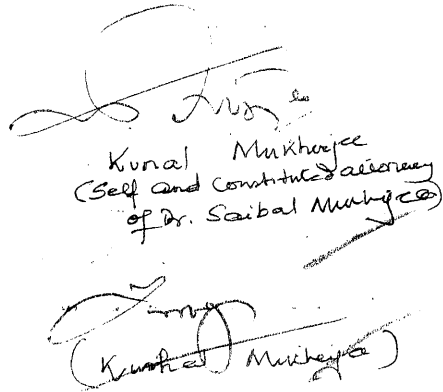 Kunal Mukherjee
(Self and Constituted attorney
of Dr. Saibal Mukherjee)
(Kunal Mukherjee)